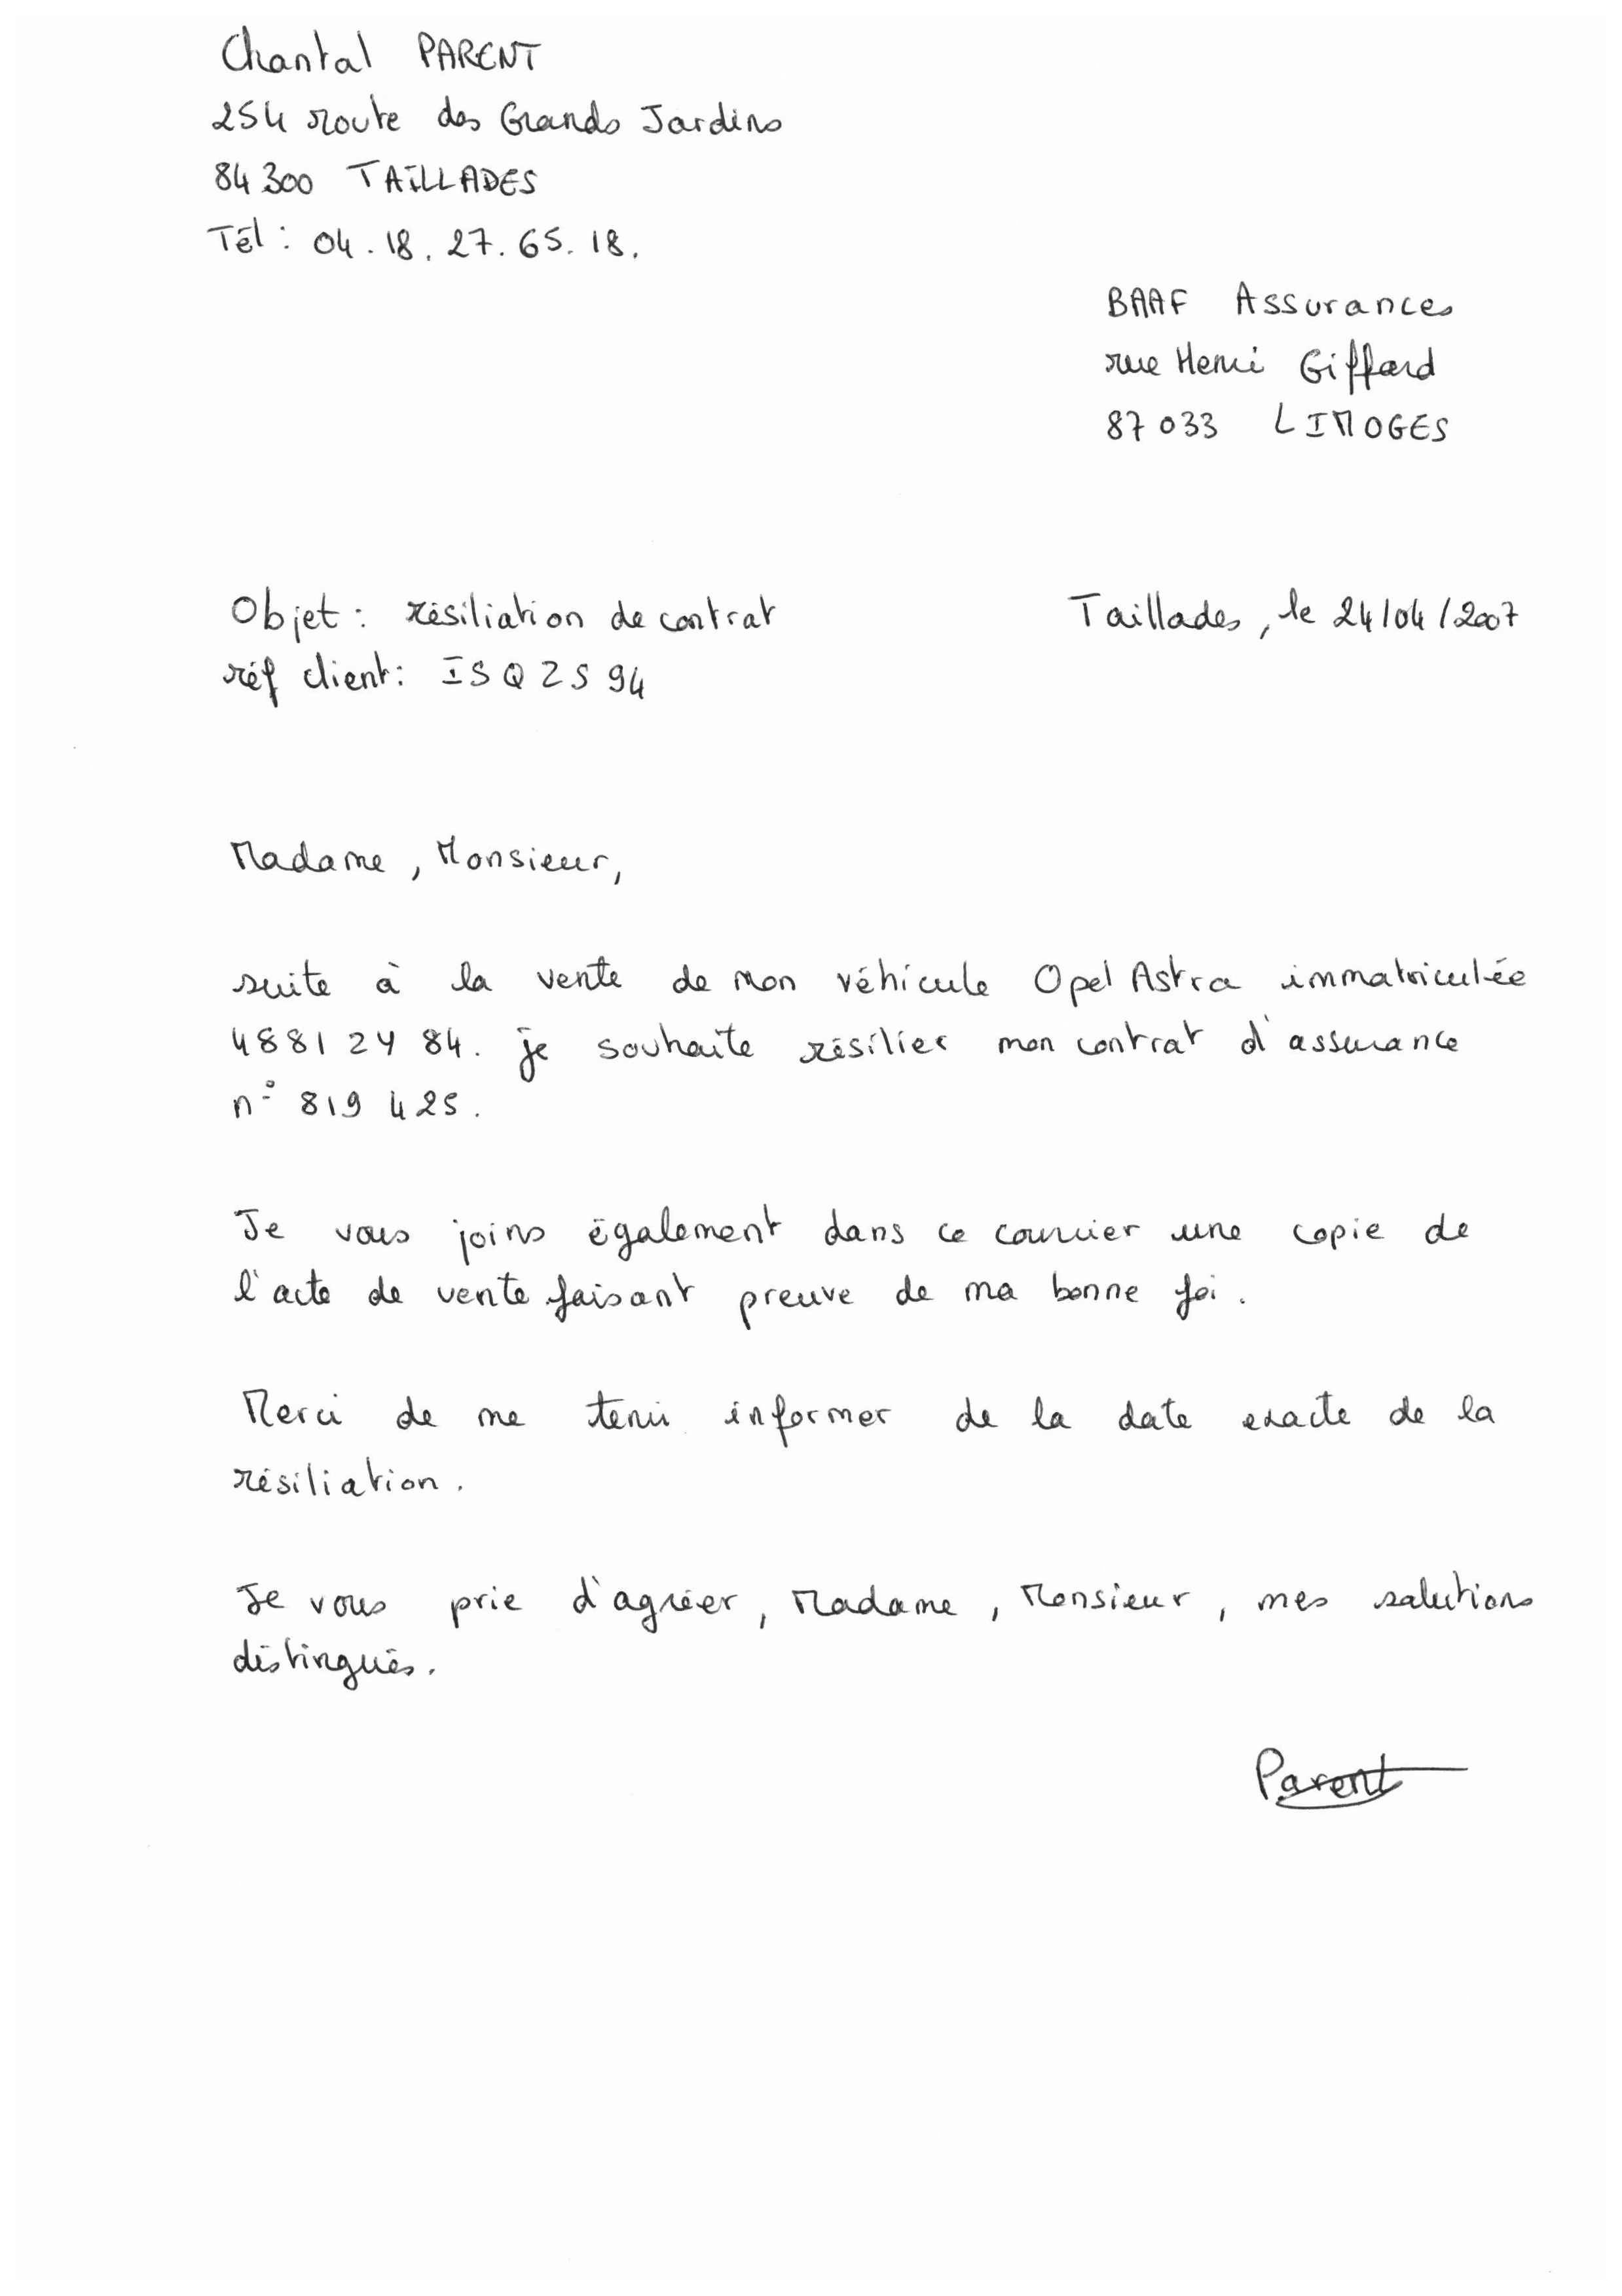 Chantal PARENT
254 route des Grands Jardins
84300 TAILLADES
Tél : 04.18.27.65.18.
BAAF Assurances
rue Henri Giffard
87033 LIMOGES
Objet : résiliation de contrat
Taillades, le 24/04/2007
réf client : ISQZS94
Madame, Monsieur,
suite à la vente de mon véhicule Opel Astra immatriculée
4881 ZY 84. je souhaite résilier mon contrat d'assurance
n° 819 425.
Je vous joins également dans ce courrier une copie de
l'acte de vente faisant preuve de ma bonne foi.
Merci de me tenir informer de la date exacte de la
résiliation.
Je vous prie d'agréer, Madame, Monsieur, mes salutions
distingués.
Parent